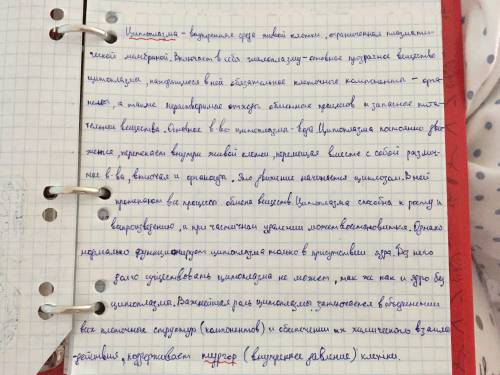 Цитоплазма - внутренняя среда живой клетки, ограниченная плазмати-
ческой мембраной. Включает в себя гиалоплазму - основное прозрачное вещество
цитоплазмы, находящиеся в ней обязательные клеточные компоненты - орга-
неллы, а также нерастворимые отходы обменных процессов и запасные пита-
тельные вещества. Основное в-во цитоплазмы - вода. Цитоплазма постоянно дви-
жется, перетекает внутри живой клетки, перемещая вместе с собой различ-
ные в-ва, включая и органоиды. Это движение называется циклозом. В ней
протекают все процессы обмена веществ. Цитоплазма способна к росту и
воспроизведению, и при частичном удалении может восстановиться. Однако
нормально функционирует цитоплазма только в присутствии ядра. Без него
долго существовать цитоплазма не может, так же как и ядро без
цитоплазмы. Важнейшая роль цитоплазмы заключается в объединении
всех клеточных структур (компонентов) и обеспечении их химического взаимо
-действия, поддерживает тургор (внутреннее давление) клетки.